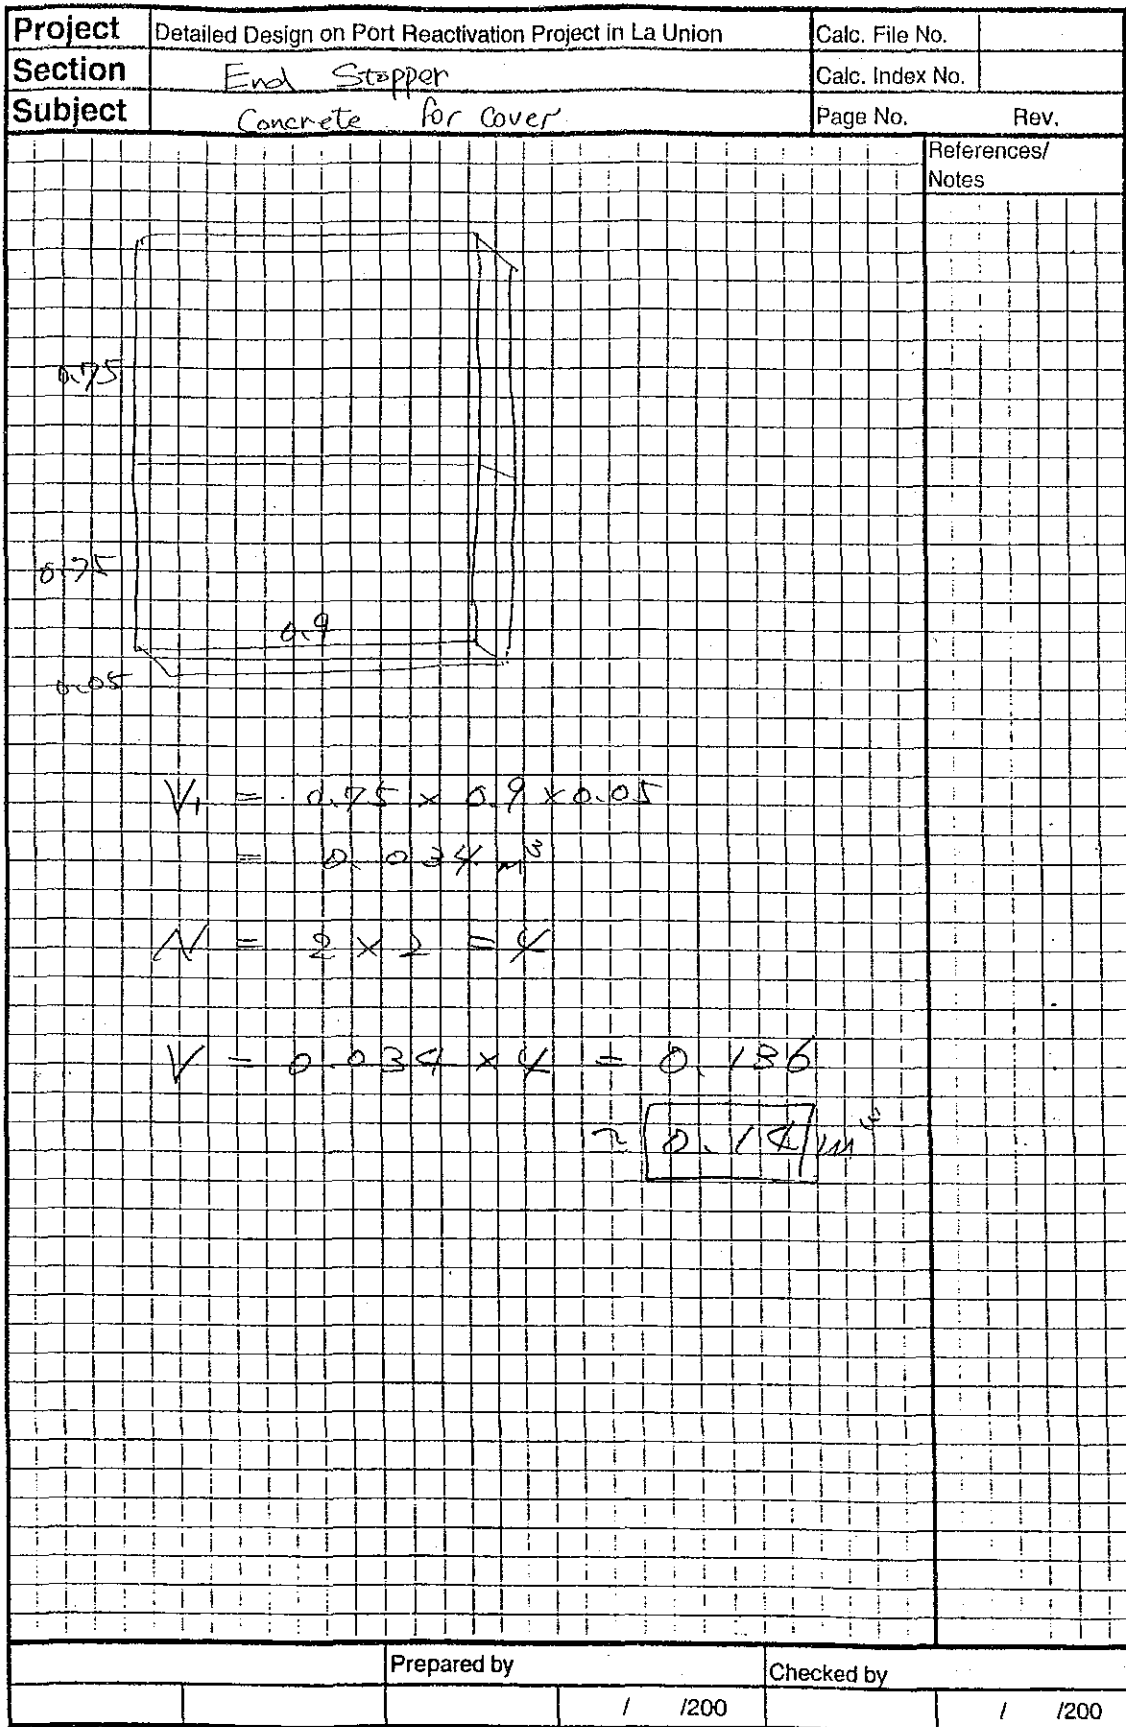 Project Detailed Design on Port Reactivation Project in La Union Calc. File No.
Section End Stopper Calc. Index No.
Subject Concrete for Cover Page No. Rev.
References/
Notes
0.75
0.75
0.9
0.05
V₁ = 0.75 × 0.9 × 0.05
= 0.034 m³
N = 2 × 2 = 4
V = 0.034 × 4 = 0.136
≈ 0.14 m³
Prepared by Checked by
/ /200 / /200